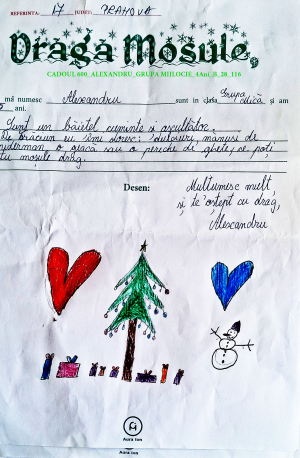 REFERINTA: 17 JUDEȚ: PRAHOVA
Dragă Moșule,
CADOUL 600_ALEXANDRU_GRUPA MIJLOCIE_4Ani_B_28_116
mă numesc Alexandru sunt în clasa Grupa mică și am
Sunt un băiețel cuminte și ascultător.
De Crăciun eu îmi doresc: dulciuri, mănuși de
yderman, o geacă sau o pereche de ghete, ce poți
tu moșule drag.
Desen:
Mulțumesc mult,
și te aștept cu drag,
Alexandru
Aura Ion
Aura Ion